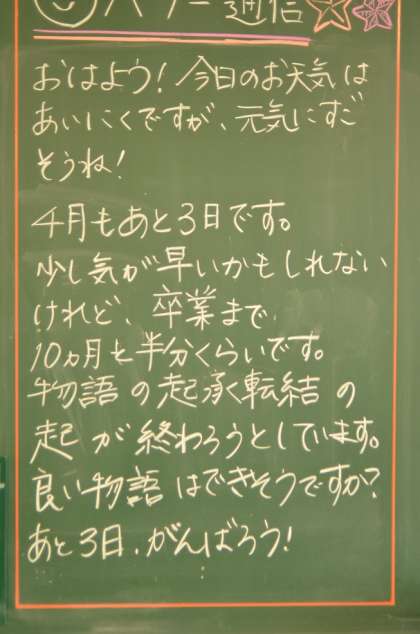 通信
おはよう！今日のお天気は
あいにくですが、元気にすご
そうね！
4月もあと3日です。
少し気が早いかもしれない
けれど、卒業まで
10ヵ月と半分くらいです。
物語の起承転結の
起が終わろうとしています。
良い物語はできそうですか？
あと3日、がんばろう！